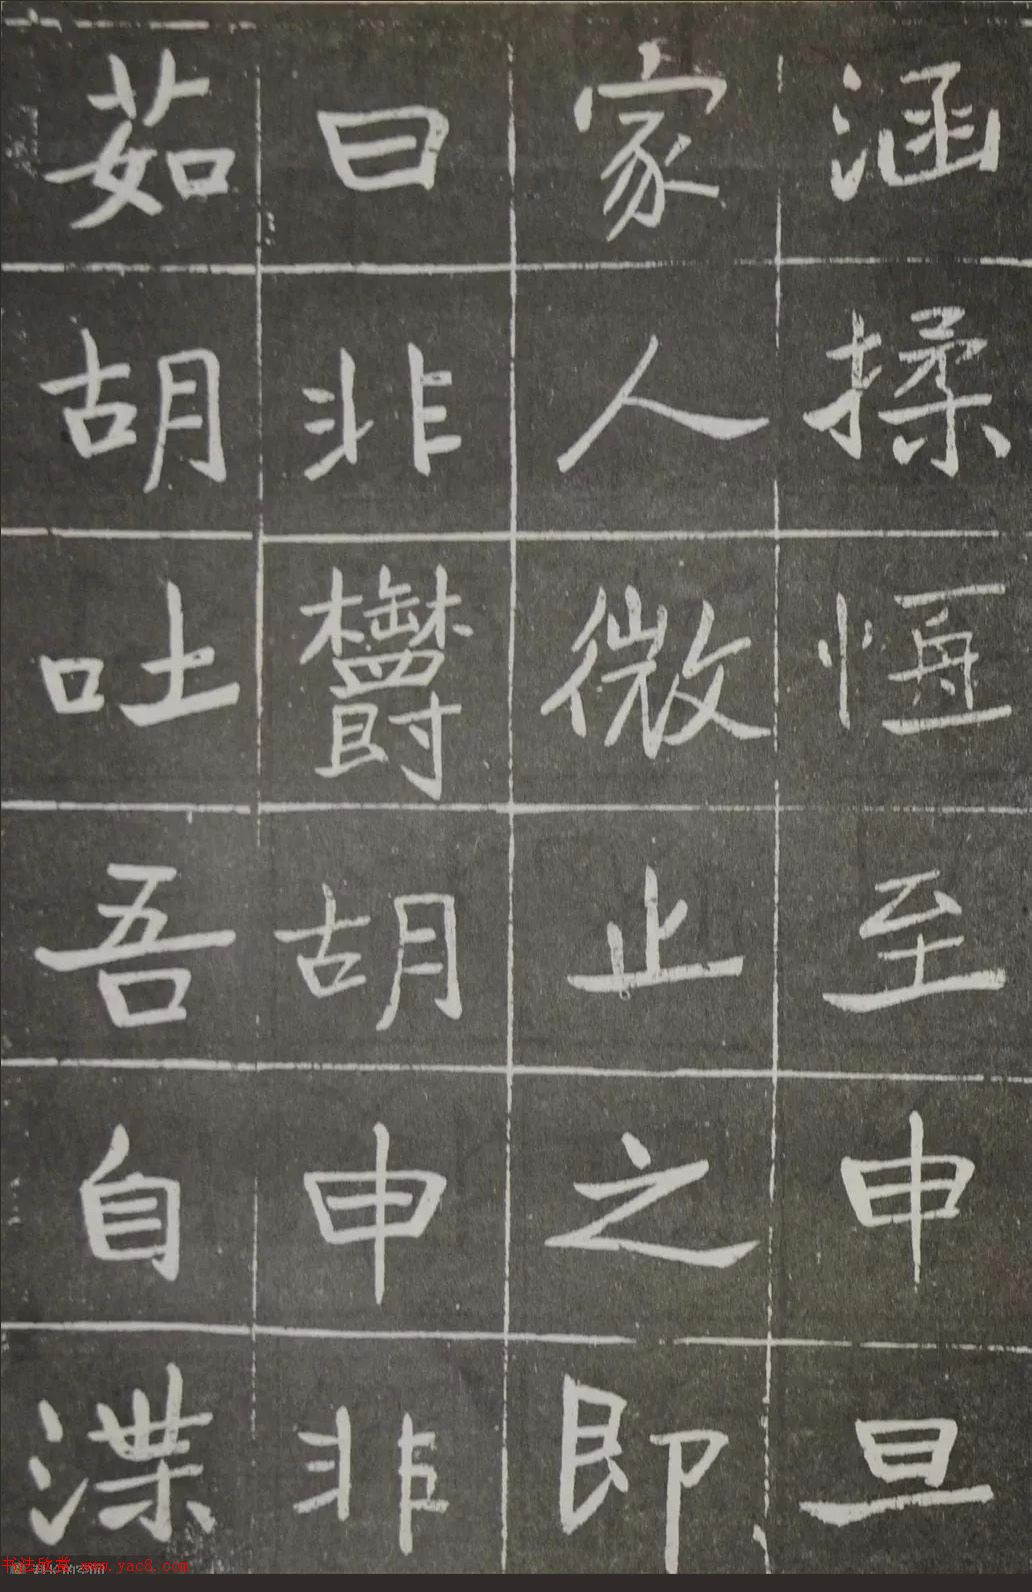 涵揉恆至申旦
家人微止之即
曰非欝胡申非
茹胡吐吾自渫
书法欣赏 www.yac8.com